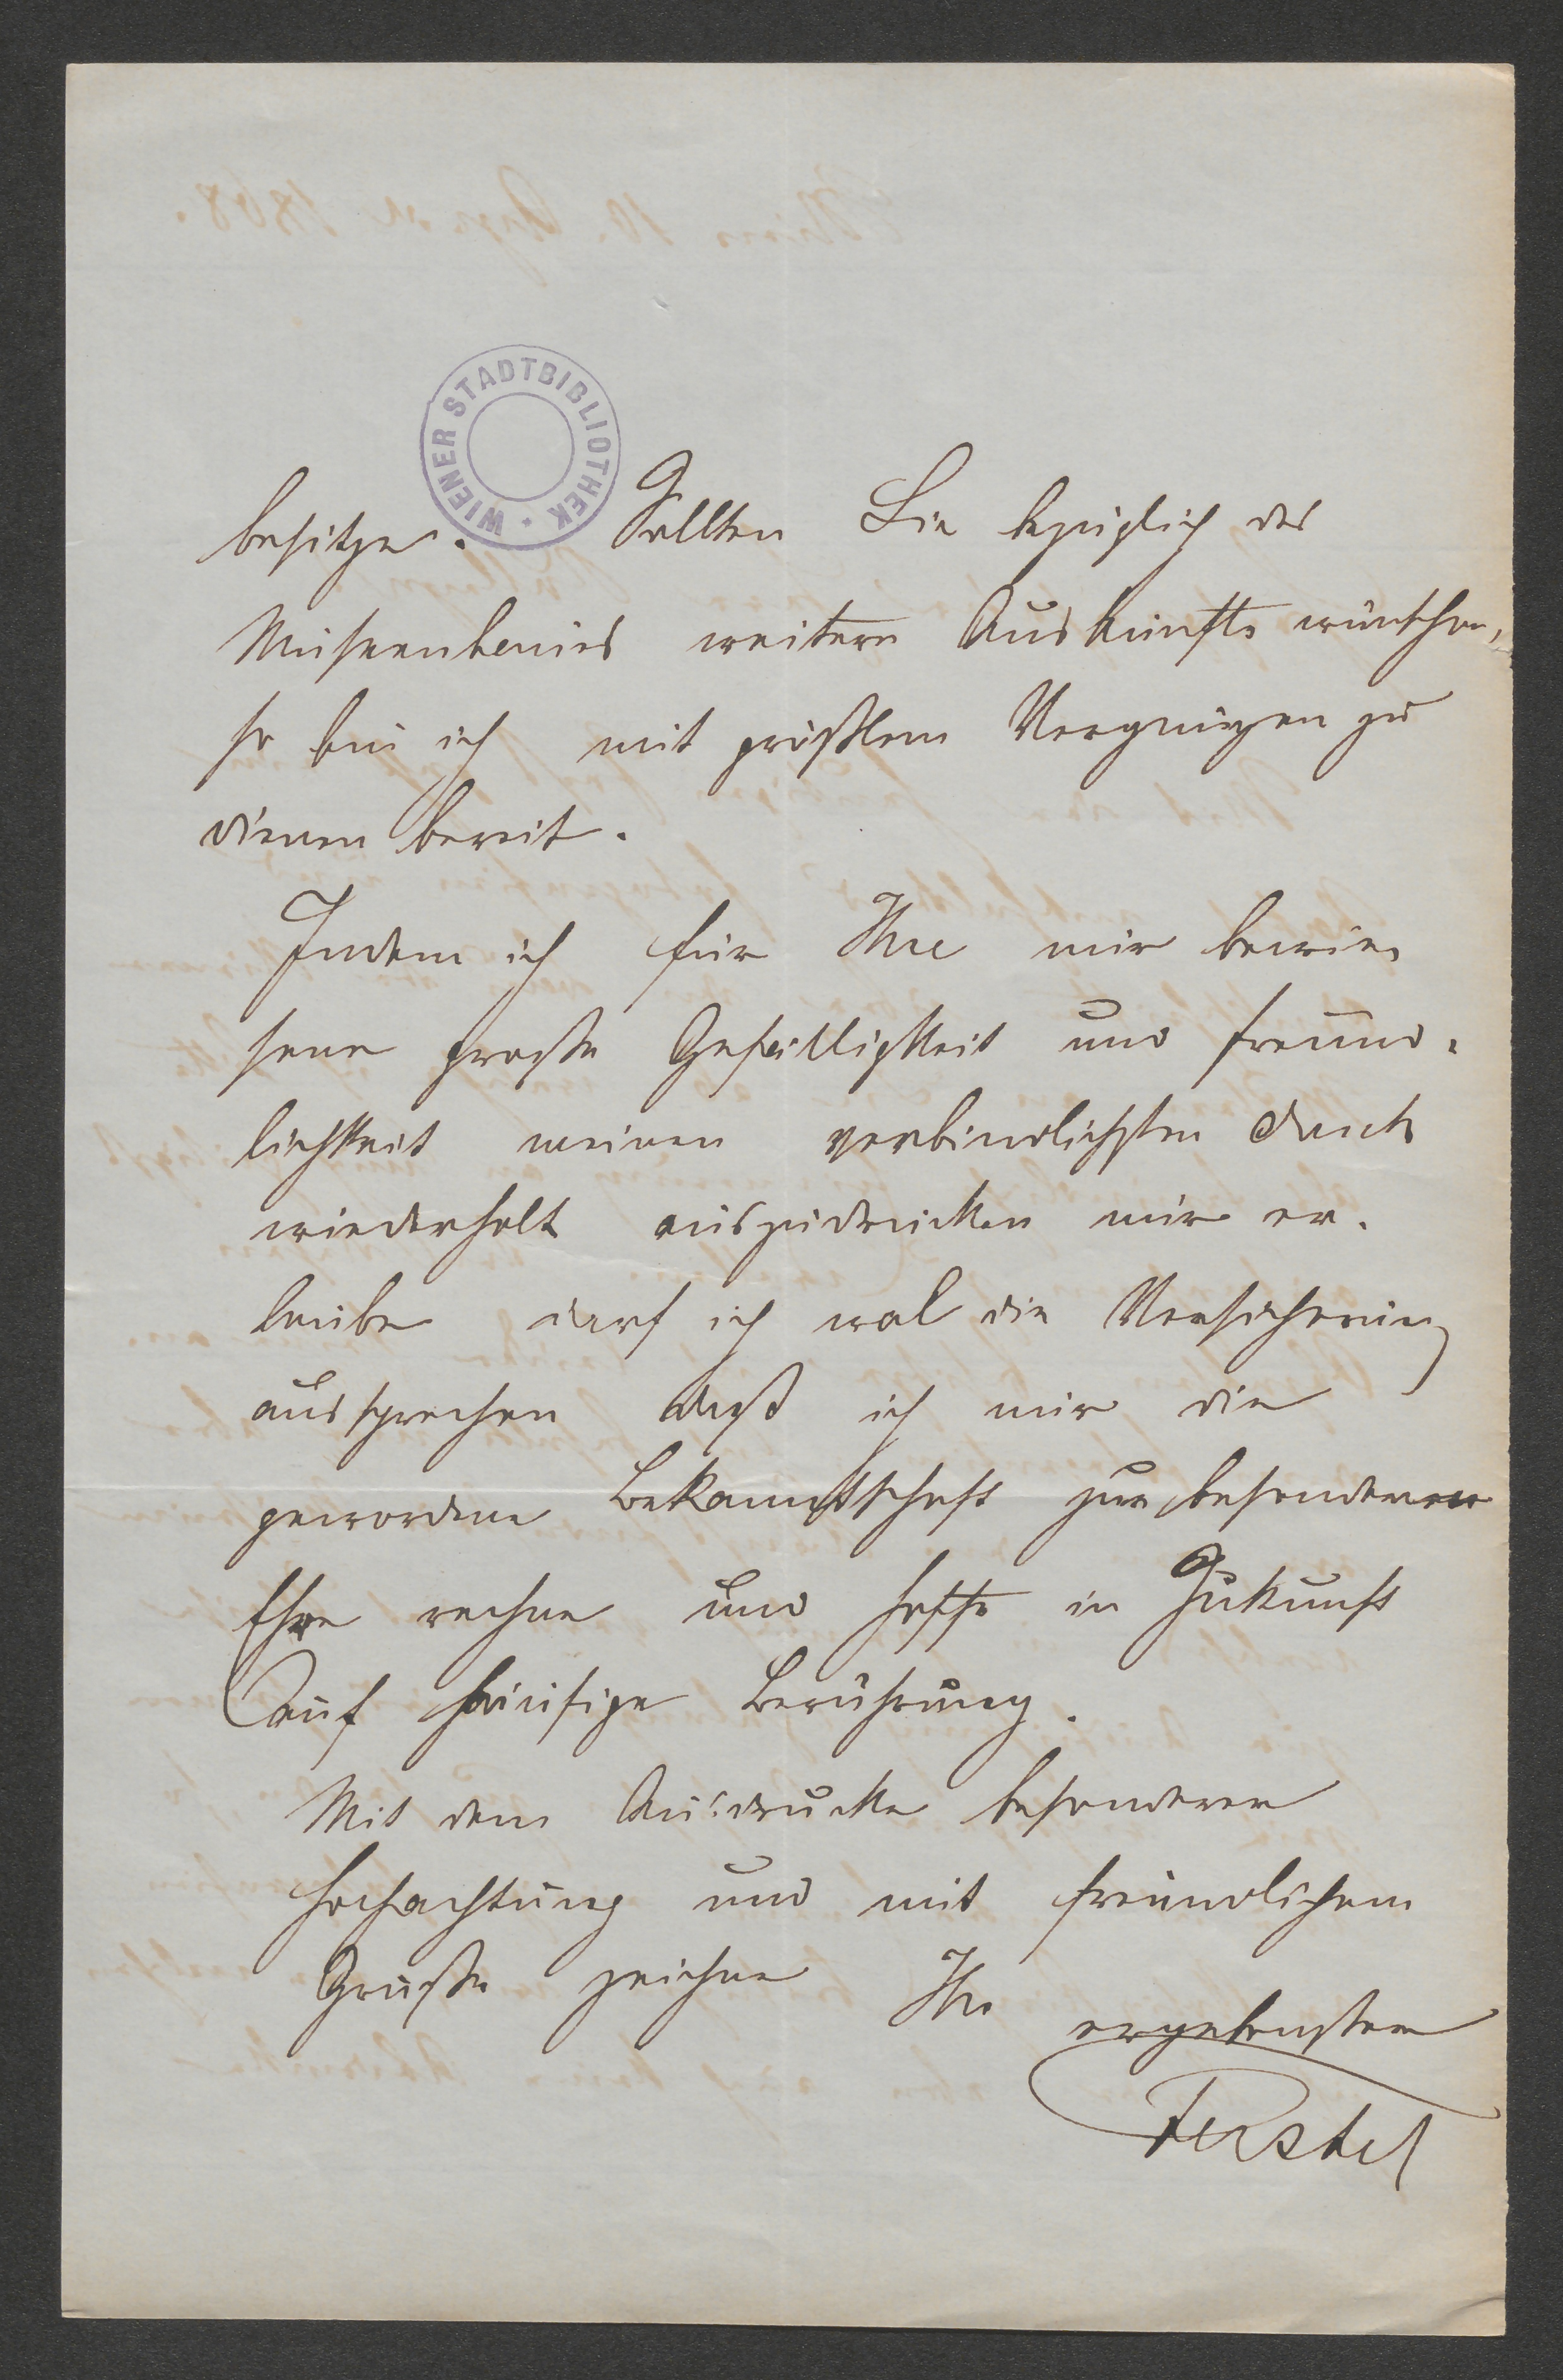 WIENER STADTBIBLIOTHEK
besitze. Sollten Sie bezüglich des
Museenbaues weitere Auskünfte wünschen,
so bin ich mit größtem Vergnügen zu
dienen bereit.
Indem ich für Ihre mir bewie-
sene große Gefälligkeit und Freund-
lichkeit meinen verbindlichsten Dank
wiederholt auszudrücken mir er-
laube darf ich wol die Versicherung
aussprechen daß ich mir die
gewordene Bekanntschaft zur besonderen
Ehre rechne und hoffe in Zukunft
auf häufige Berührung.
Mit dem Ausdrucke besonderer
Hochachtung und mit freundlichem
Gruße zeichne Ihr
ergebenster
Ferstel